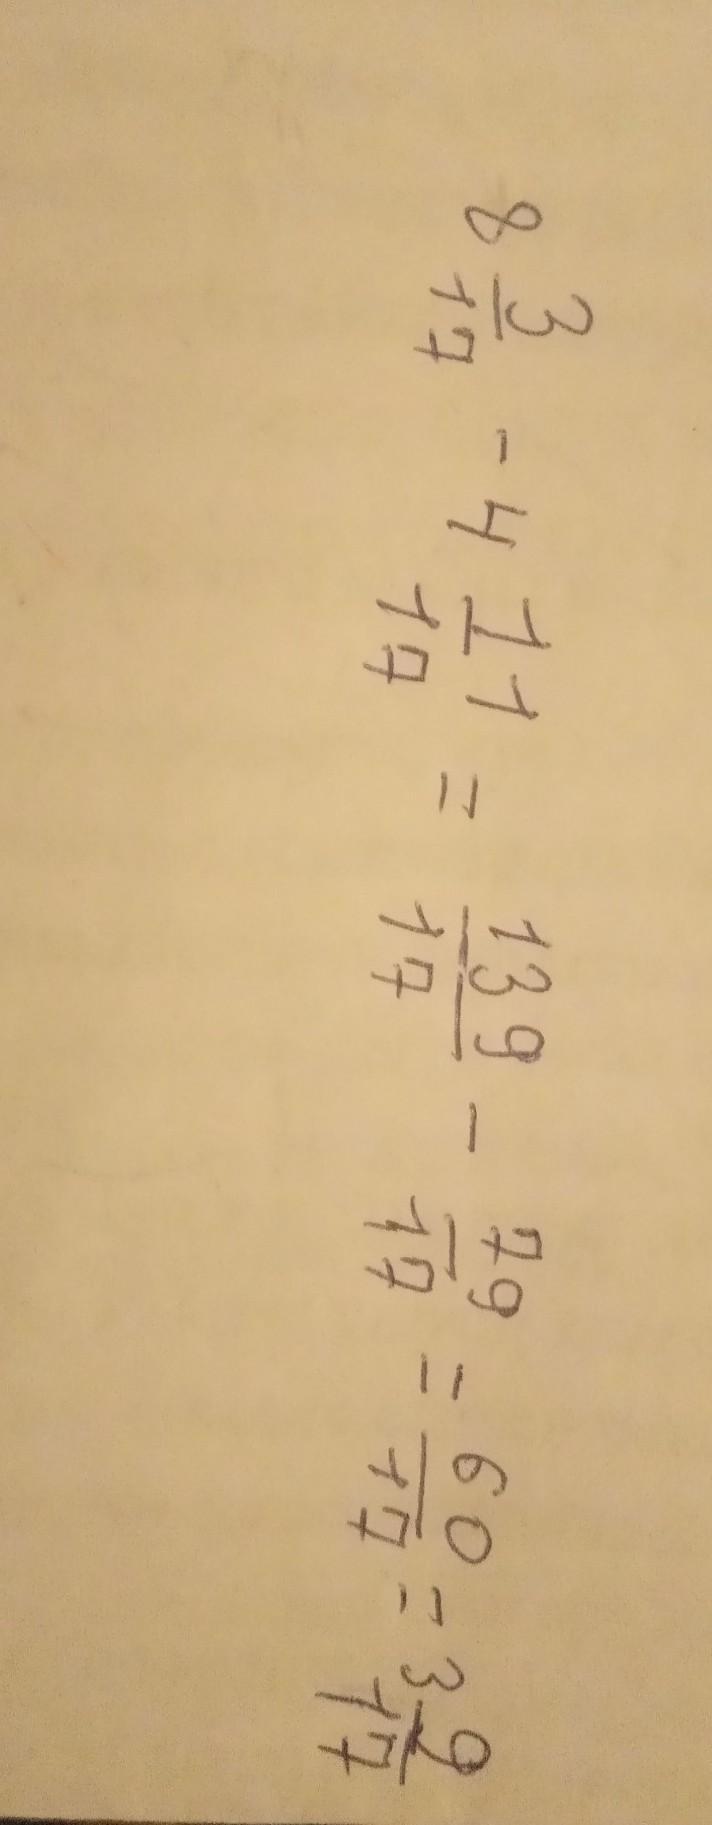 8 3/17 - 4 11/17 = 139/17 - 79/17 = 60/17 = 3 9/17